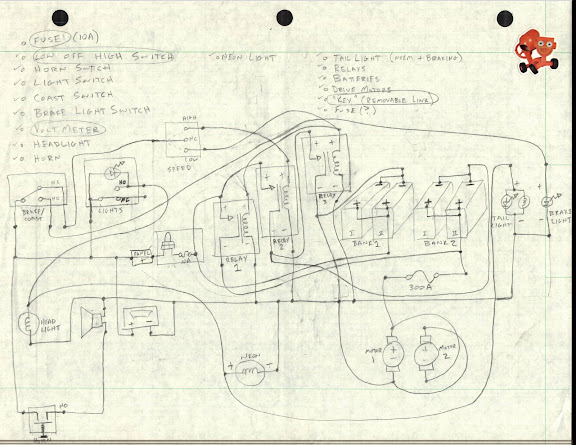 FUSE! (10A)
LOW OFF HIGH SWITCH
HORN SWITCH
LIGHT SWITCH
COAST SWITCH
BRAKE LIGHT SWITCH
VOLT METER
HEADLIGHT
HORN
NEON LIGHT
TAIL LIGHT (NORM + BRAKING)
RELAYS
BATTERIES
DRIVE MOTORS
"KEY" (REMOVABLE LINK)
FUSE (?)
HIGH
NC
LOW
SPEED
NC
NO
BRAKE/
COAST
NO
NC
LIGHTS
10A
RELAY
1
RELAY
2
RELAY
3
I
II
BANK 1
I
II
BANK 2
TAIL
LIGHT
BRAKE
LIGHT
300A
HEAD
LIGHT
NEON
MOTOR
1
MOTOR
2
NO
HORN